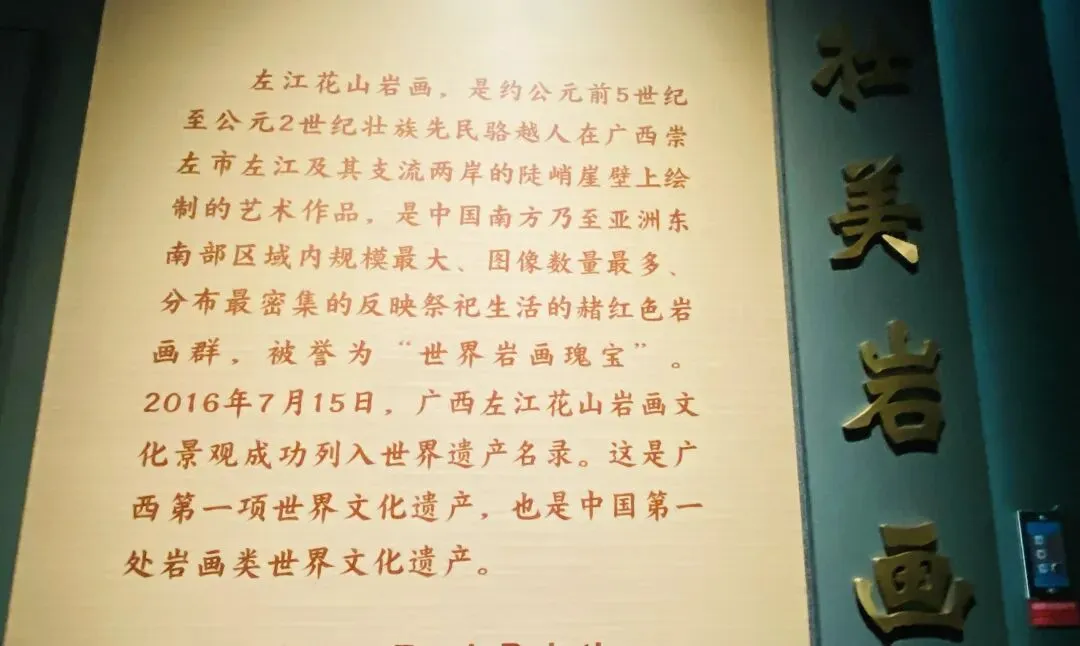 左江花山岩画，是约公元前5世纪
至公元2世纪壮族先民骆越人在广西崇
左市左江及其支流两岸的陡峭崖壁上绘
制的艺术作品，是中国南方乃至亚洲东
南部区域内规模最大、图像数量最多、
分布最密集的反映祭祀生活的赭红色岩
画群，被誉为“世界岩画瑰宝”。
2016年7月15日，广西左江花山岩画文
化景观成功列入世界遗产名录。这是广
西第一项世界文化遗产，也是中国第一
处岩画类世界文化遗产。
壮美岩画